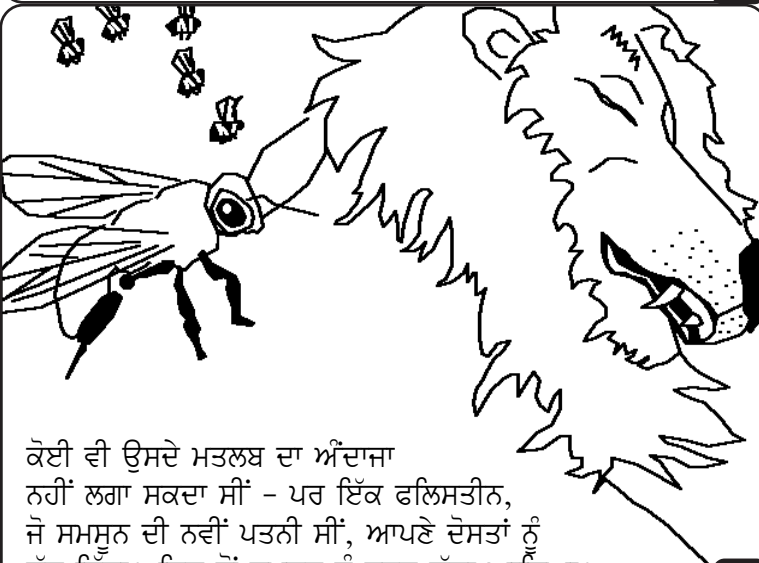 ਕੋਈ ਵੀ ਉਸਦੇ ਮਤਲਬ ਦਾ ਅੰਦਾਜਾ
ਨਹੀਂ ਲਗਾ ਸਕਦਾ ਸੀਂ – ਪਰ ਇੱਕ ਫਲਿਸਤੀਨ,
ਜੋ ਸਮਸੂਨ ਦੀ ਨਵੀਂ ਪਤਨੀ ਸੀਂ, ਆਪਣੇ ਦੋਸਤਾਂ ਨੂੰ